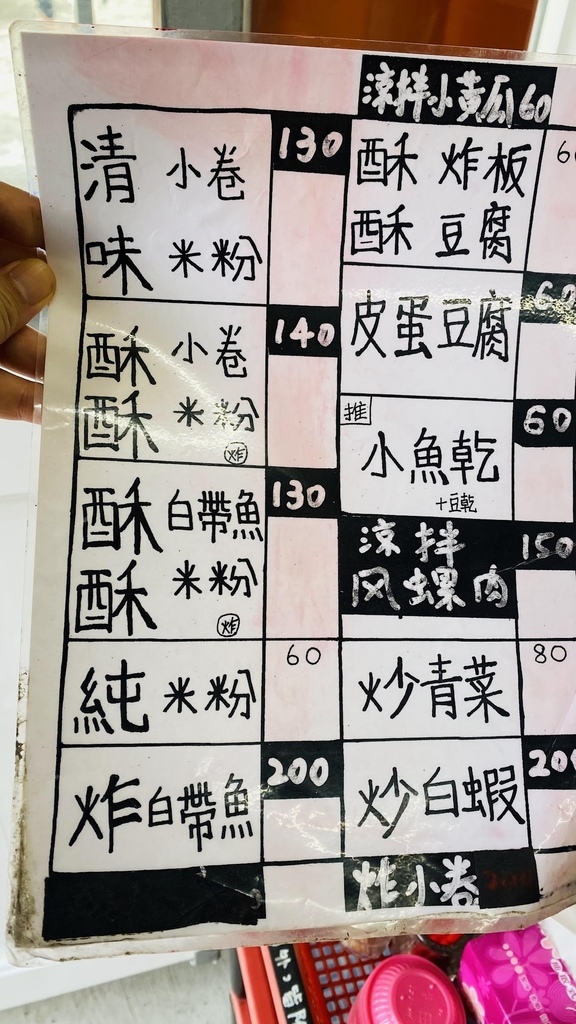 涼拌小黃瓜60
清 小卷 130
味 米粉
酥 小卷 140
酥 米粉
炸
酥 白帶魚 130
酥 米粉
炸
純 米粉 60
炸白帶魚 200
酥 炸板
酥 豆腐
皮蛋豆腐 60
推
小魚乾 60
+豆乾
涼拌 150
风螺肉
炒青菜 80
炒白蝦 200
炸小卷